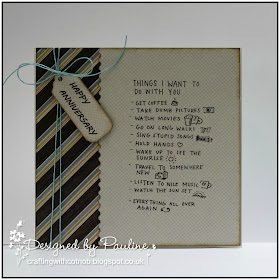 HAPPY
ANNIVERSARY
THINGS I WANT TO
DO WITH YOU
- GET COFFEE
- TAKE DUMB PICTURES
- WATCH MOVIES
- GO ON LONG WALKS
- SING STUPID SONGS
- HOLD HANDS
- WAKE UP TO SEE THE
SUNRISE
- TRAVEL TO SOMEWHERE
NEW
- LISTEN TO NICE MUSIC
- WATCH THE SUN SET
- EVERYTHING ALL OVER
AGAIN
Designed by Pauline
craftingwithcotnob.blogspot.co.uk